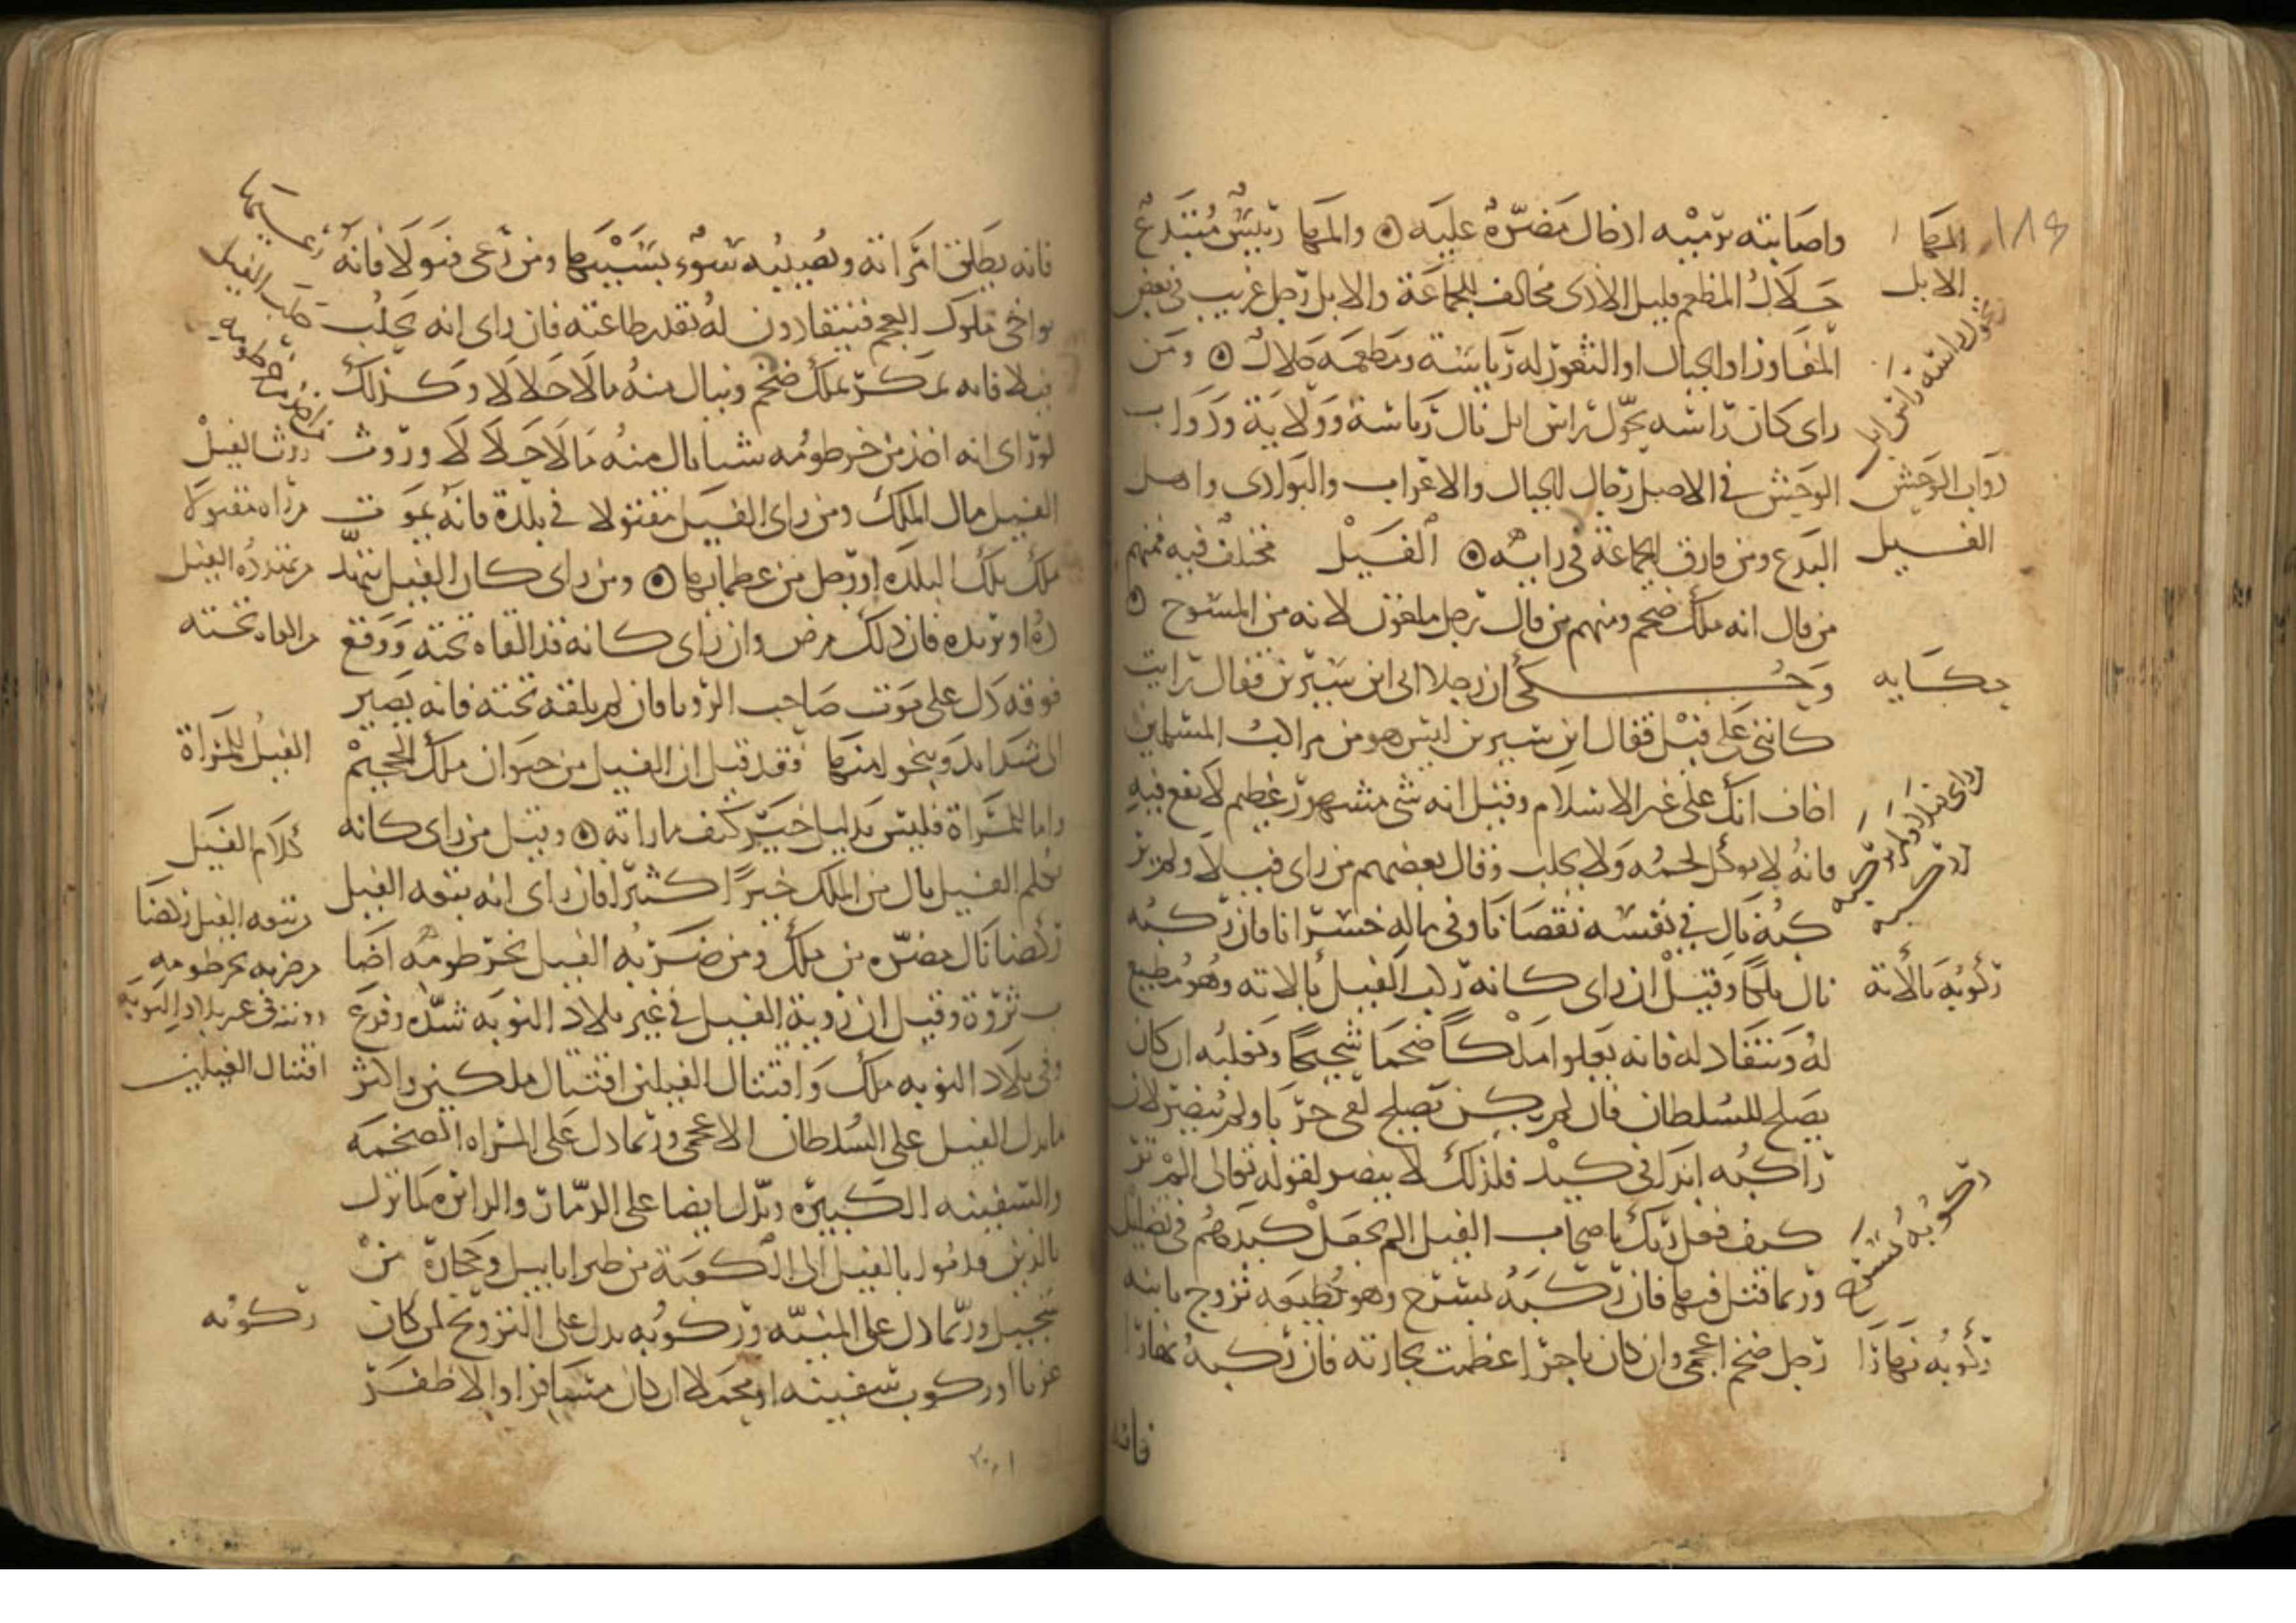 المها
الابل
واصابته برميه اذ قال مضرة عليه ۞ والمها رييس مبتدع
حلال المطعم قليل الاذى مخالف للجماعة والايل رجل غريب في بعض
المفاوز او الجبال او الثغور له رياسة ومطعمه حلال ۞ ومن
راى كان راسه تحول راس ايل نال رياسة وولاية ودواب
الوحش في الاصل رجال الجبال والاعراب والبوادي واهل
البدع ومن فارق الجماعة في رايه ۞ الفيل مختلف فيه فمنهم
من قال انه ملك ضخم ومنهم من قال رجل ملعون لانه من المسوخ ۞
وحكي ان رجلا اتى ابن سيرين فقال رايت
كانني على فيل فقال ابن سيرين ليس هو من مراكب المسلمين
اخاف انك على غير الاسلام وقيل انه شي مشهور عظيم لا نفع فيه
فانه لا يوكل لحمه ولا يحلب وقال بعضهم من راى فيلا ولم ير
كبه نال في نفسه نقصانا وفي ماله خسرانا فان ركبه
نال ملكا وقيل ان راى كانه ركب الفيل بالاته وهو مطيع
له وينقاد له فانه يعلوا ملكا ضخما شحيحا ويغلبه ان كان
يصلح للسلطان فان لم يكن يصلح لقي حربا ولم ينصر لان
راكبه ابدا في كيد فلذلك لا ينصر لقوله تعالى الم تر
كيف فعل ربك باصحاب الفيل الم يجعل كيدهم في تضليل
وربما قتل فيها فان ركبه بسرج وهو يطيعه تزوج بابنه
رجل ضخم اعجمي وان كان تاجرا عظمت تجارته فان ركبه نهارا
فانه
دواب الوحش
الفيل
حكايه
ركوبه بالاته
ركوبه بسرج
ركوبه نهارا
فانه يطلق امراته ويصيبه سوء بسببها ومن رعى فيولا فانه
يواخي ملوك العجم فينقادون له بقدر طاعته فان راى انه يحلب
فيلا فانه يمكر بملك ضخم وينال منه مالا حلالا وكذلك
لو راى انه اخذ من خرطومه شيا نال منه مالا حلالا وروث
الفيل مال الملك ومن راى الفيل مقتولا في بلدة فانه يموت
ملك تلك البلدة او رجل من عظمايها ۞ ومن راى كان الفيل يتهدد
ده او يريده فان ذلك مرض وان راى كانه قد القاه تحته ووقع
فوقه دل على موت صاحب الرويا فان لم يلقه تحته فانه يصير
الى شدايد وينجو منها فقد قيل ان الفيل من حيوان ملك الجحيم
واما للمراة فليس بدليل خير كيف ما راته ۞ وقيل من راى كانه
يكلم الفيل نال من الملك خيرا كثيرا فان راى انه يتبعه الفيل
ركضا نال مضره من ملك ومن ضربه الفيل بخرطومه اصا
ب ثروة وقيل ان روية الفيل في غير بلاد النوبه شدة وفزع
وفي بلاد النوبه ملك واقتتال الفيلين اقتتال ملكين واكثر
ما يدل الفيل على السلطان الاعجمي وربما دل على المراه الضخمه
والسفينه الكبيره ويدل ايضا على الدمار والدايره لما نزل
بالذين قدموا بالفيل الى الكعبة من طير ابابيل وحجارة من
سجيل وربما دل على المنيه وركوبه يدل على التزويج لمن كان
عزبا او ركوب سفينه او محملا ان كان مسافرا والا ظفر
كلب الفيل
روث الفيل
مراه مقتولا
من تهدده الفيل
من القاه تحته
الفيل للمراة
كلام الفيل
من تبعه الفيل ركضا
من ضربه بخرطومه
رويته في غير بلاد النوبه
اقتتال الفيلين
ركوبه